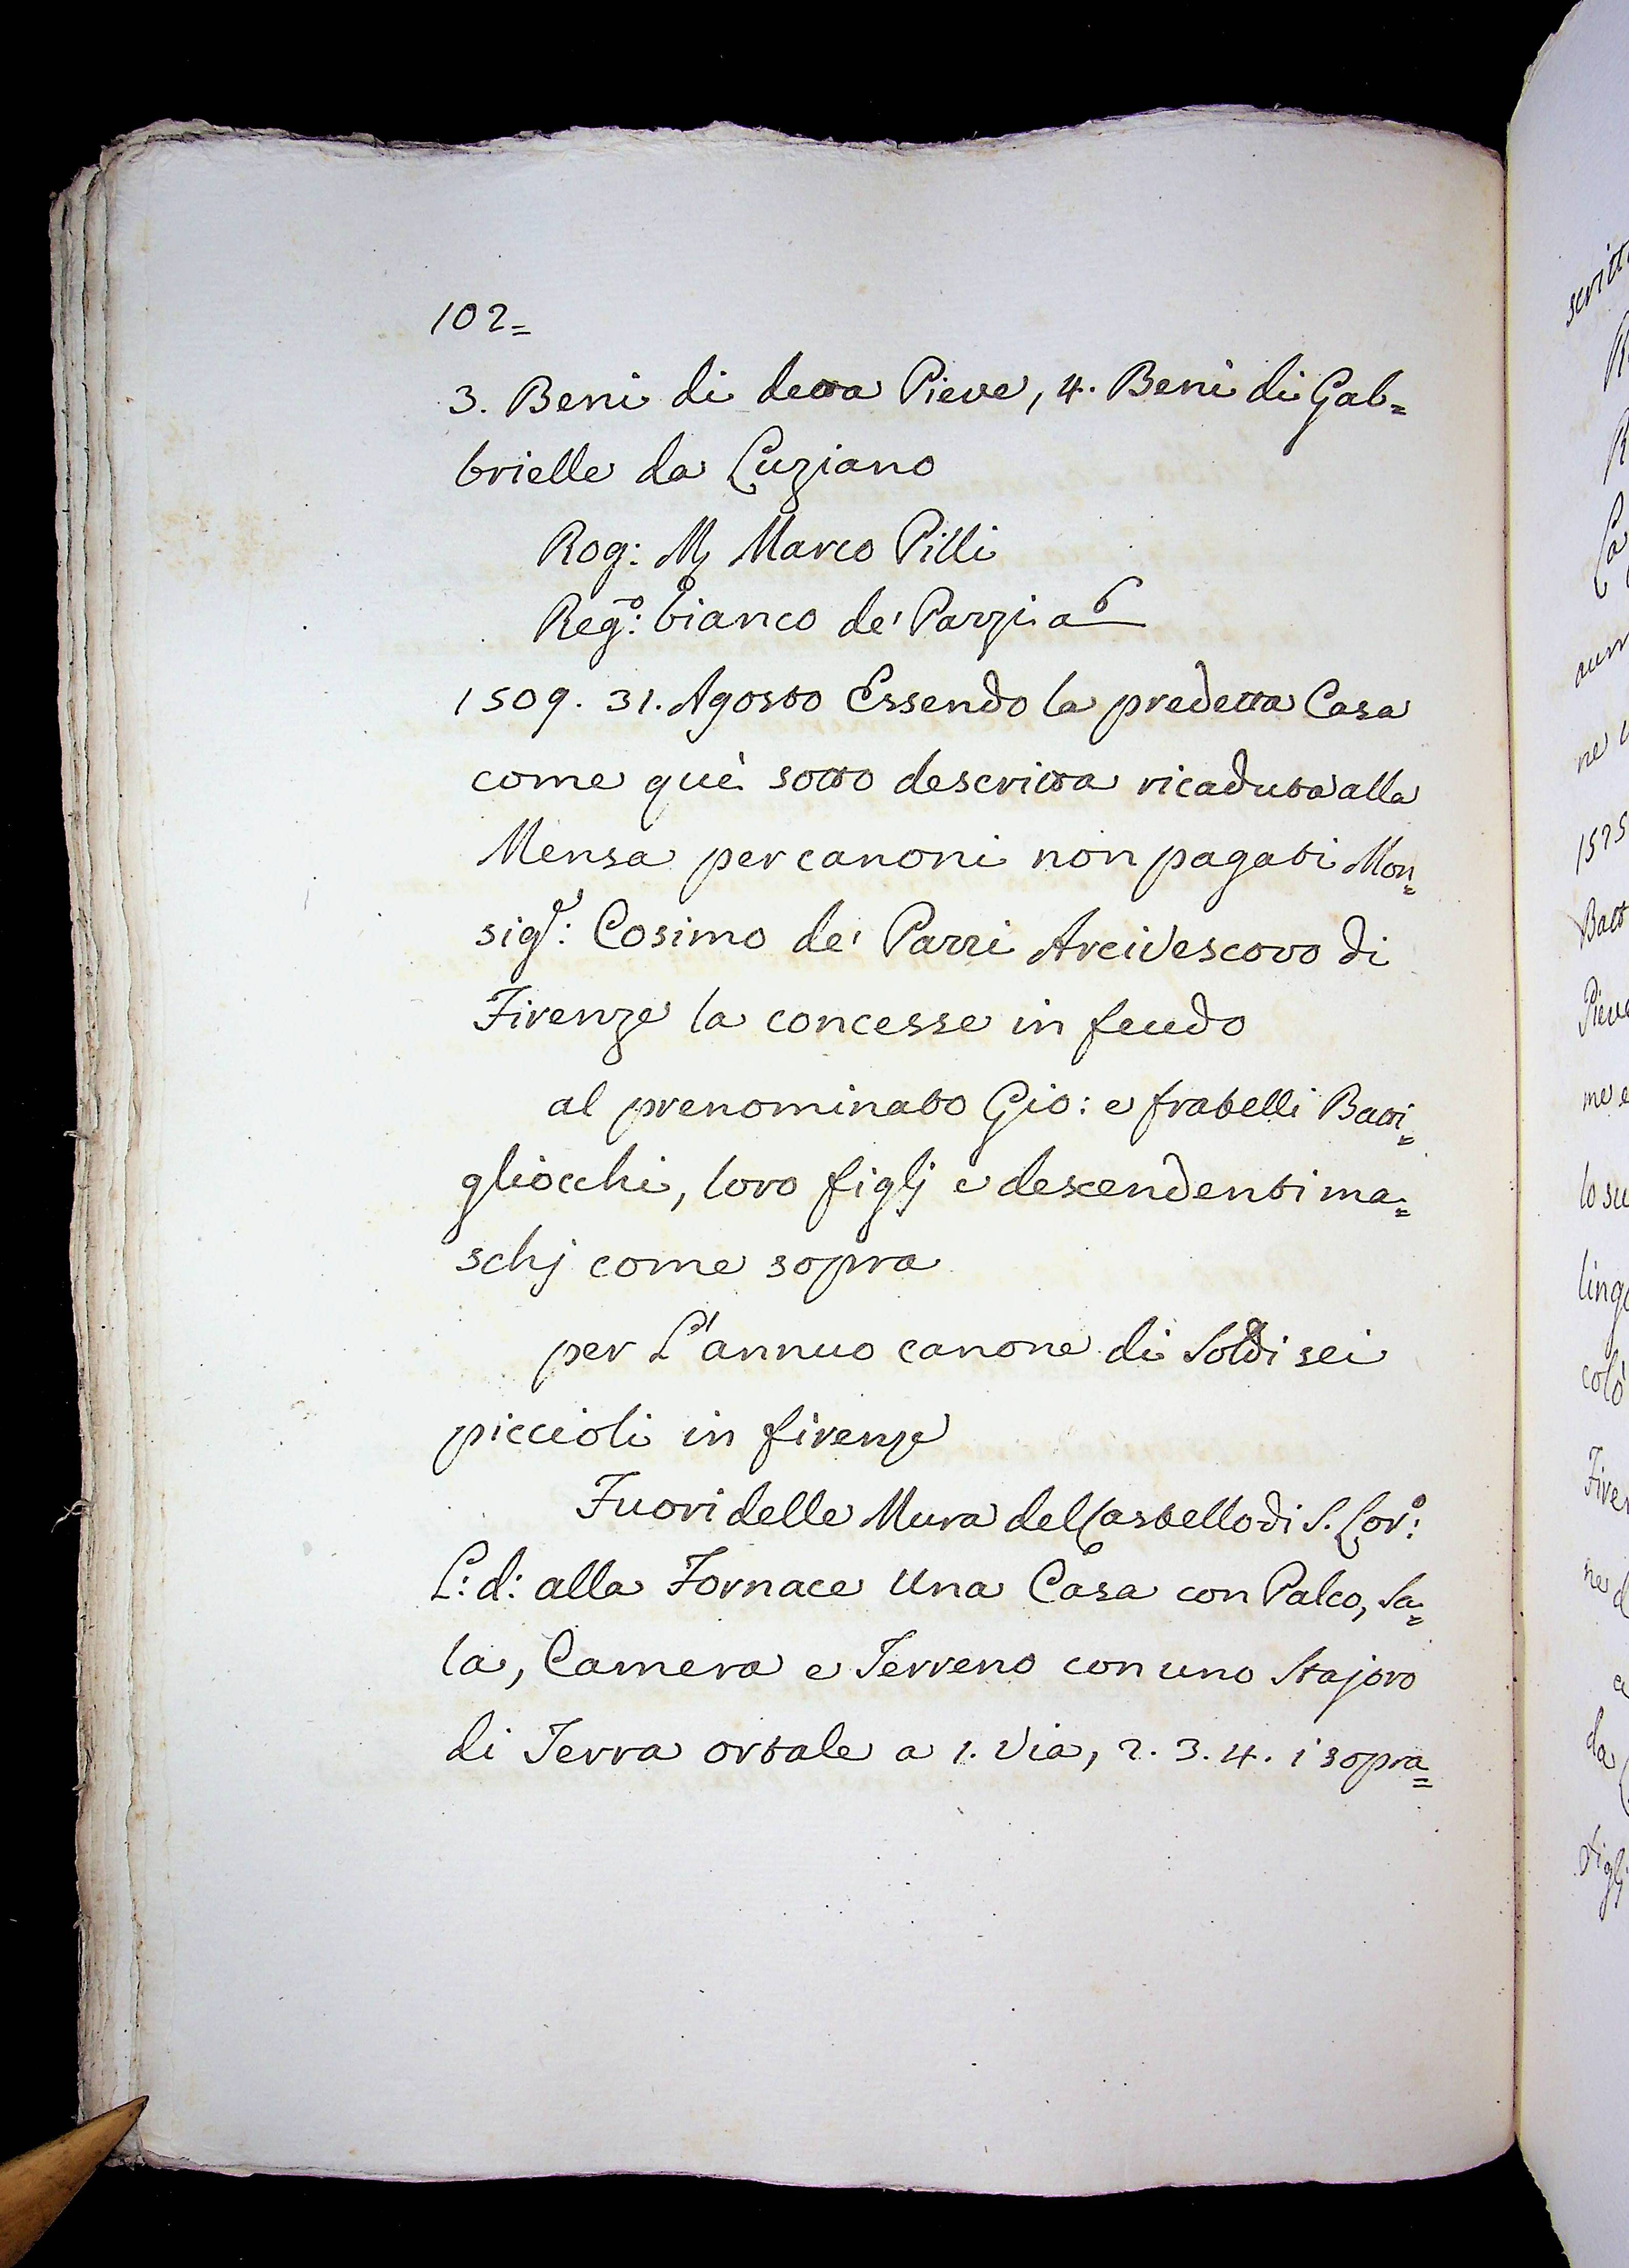 102=
3. Beni di detta Pieve, 4. Beni di Gab=
brielle da Luziano
Rog: M. Marco Pilli
Reg.o: bianco de' Pazzi a 6
1509. 31. Agosto Essendo la predetta Casa
come quì sotto descritta ricaduta alla
Mensa per canoni non pagati Mon=
sig.r: Cosimo de' Pazzi Arcivescovo di
Firenze la concesse in feudo
al prenominato Gio: e fratelli Batti=
gliocchi, loro figlj e descendenti ma=
schj come sopra
per L'annuo canone di Soldi sei
piccioli in firenze
Fuori delle Mura del Castello di S. Lor.o:
L: d: alla Fornace Una Casa con Palco, Sa=
la, Camera e Terreno con uno Stajoro
di Terra ortale a 1. Via, 2. 3. 4. i sopra=